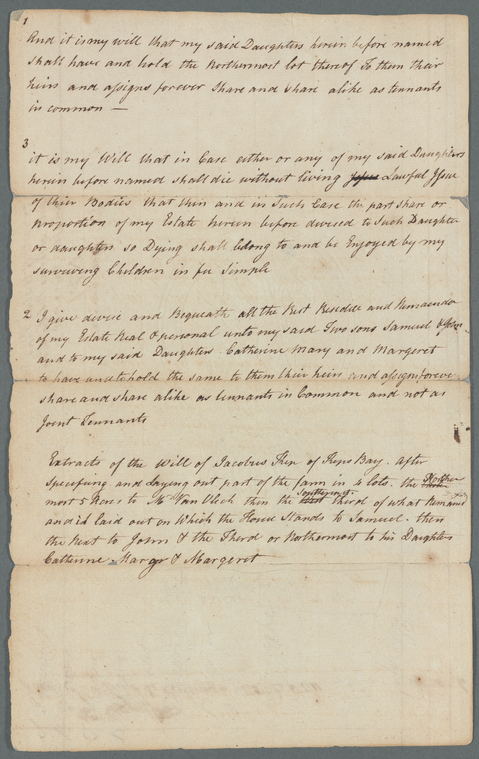 1
And it is my will that my said Daughters herein before named
shall have and hold the Northermost lot thereof To them their
heirs and assigns forever Share and Share alike as tennants
in common —
3
it is my Will that in Case either or any of my said Daughters
herein before named shall die without living Lawful Issue
of their Bodies that then and in Such Case the part share or
proportion of my Estate herein before devised to Such Daughter
or daughters so Dying shall belong to and be Enjoyed by my
surviveing Children in fee Simple
2 I give devise and Bequeath all the Rest Residue and Remainder
of my Estate Real & personal unto my said Two sons Samuel &
and to my said Daughters Catherine Mary and Margeret
to have and to hold the same to them their heirs and assigns forever
share and share alike as tennants in Common and not as
Joint Tennants
Extracts of the Will of Jacobus Kip of Kips Bay. After
Specifying and Laying out part of the farm in 4 lots, the Norther
most 5 Acres to Mr Van Vleck then the Southermost third of what Remains
and is laid out on Which the House Stands to Samuel. then
the Next to John & the Third or Northermost to his Daughters
Catherine Mary & Margeret